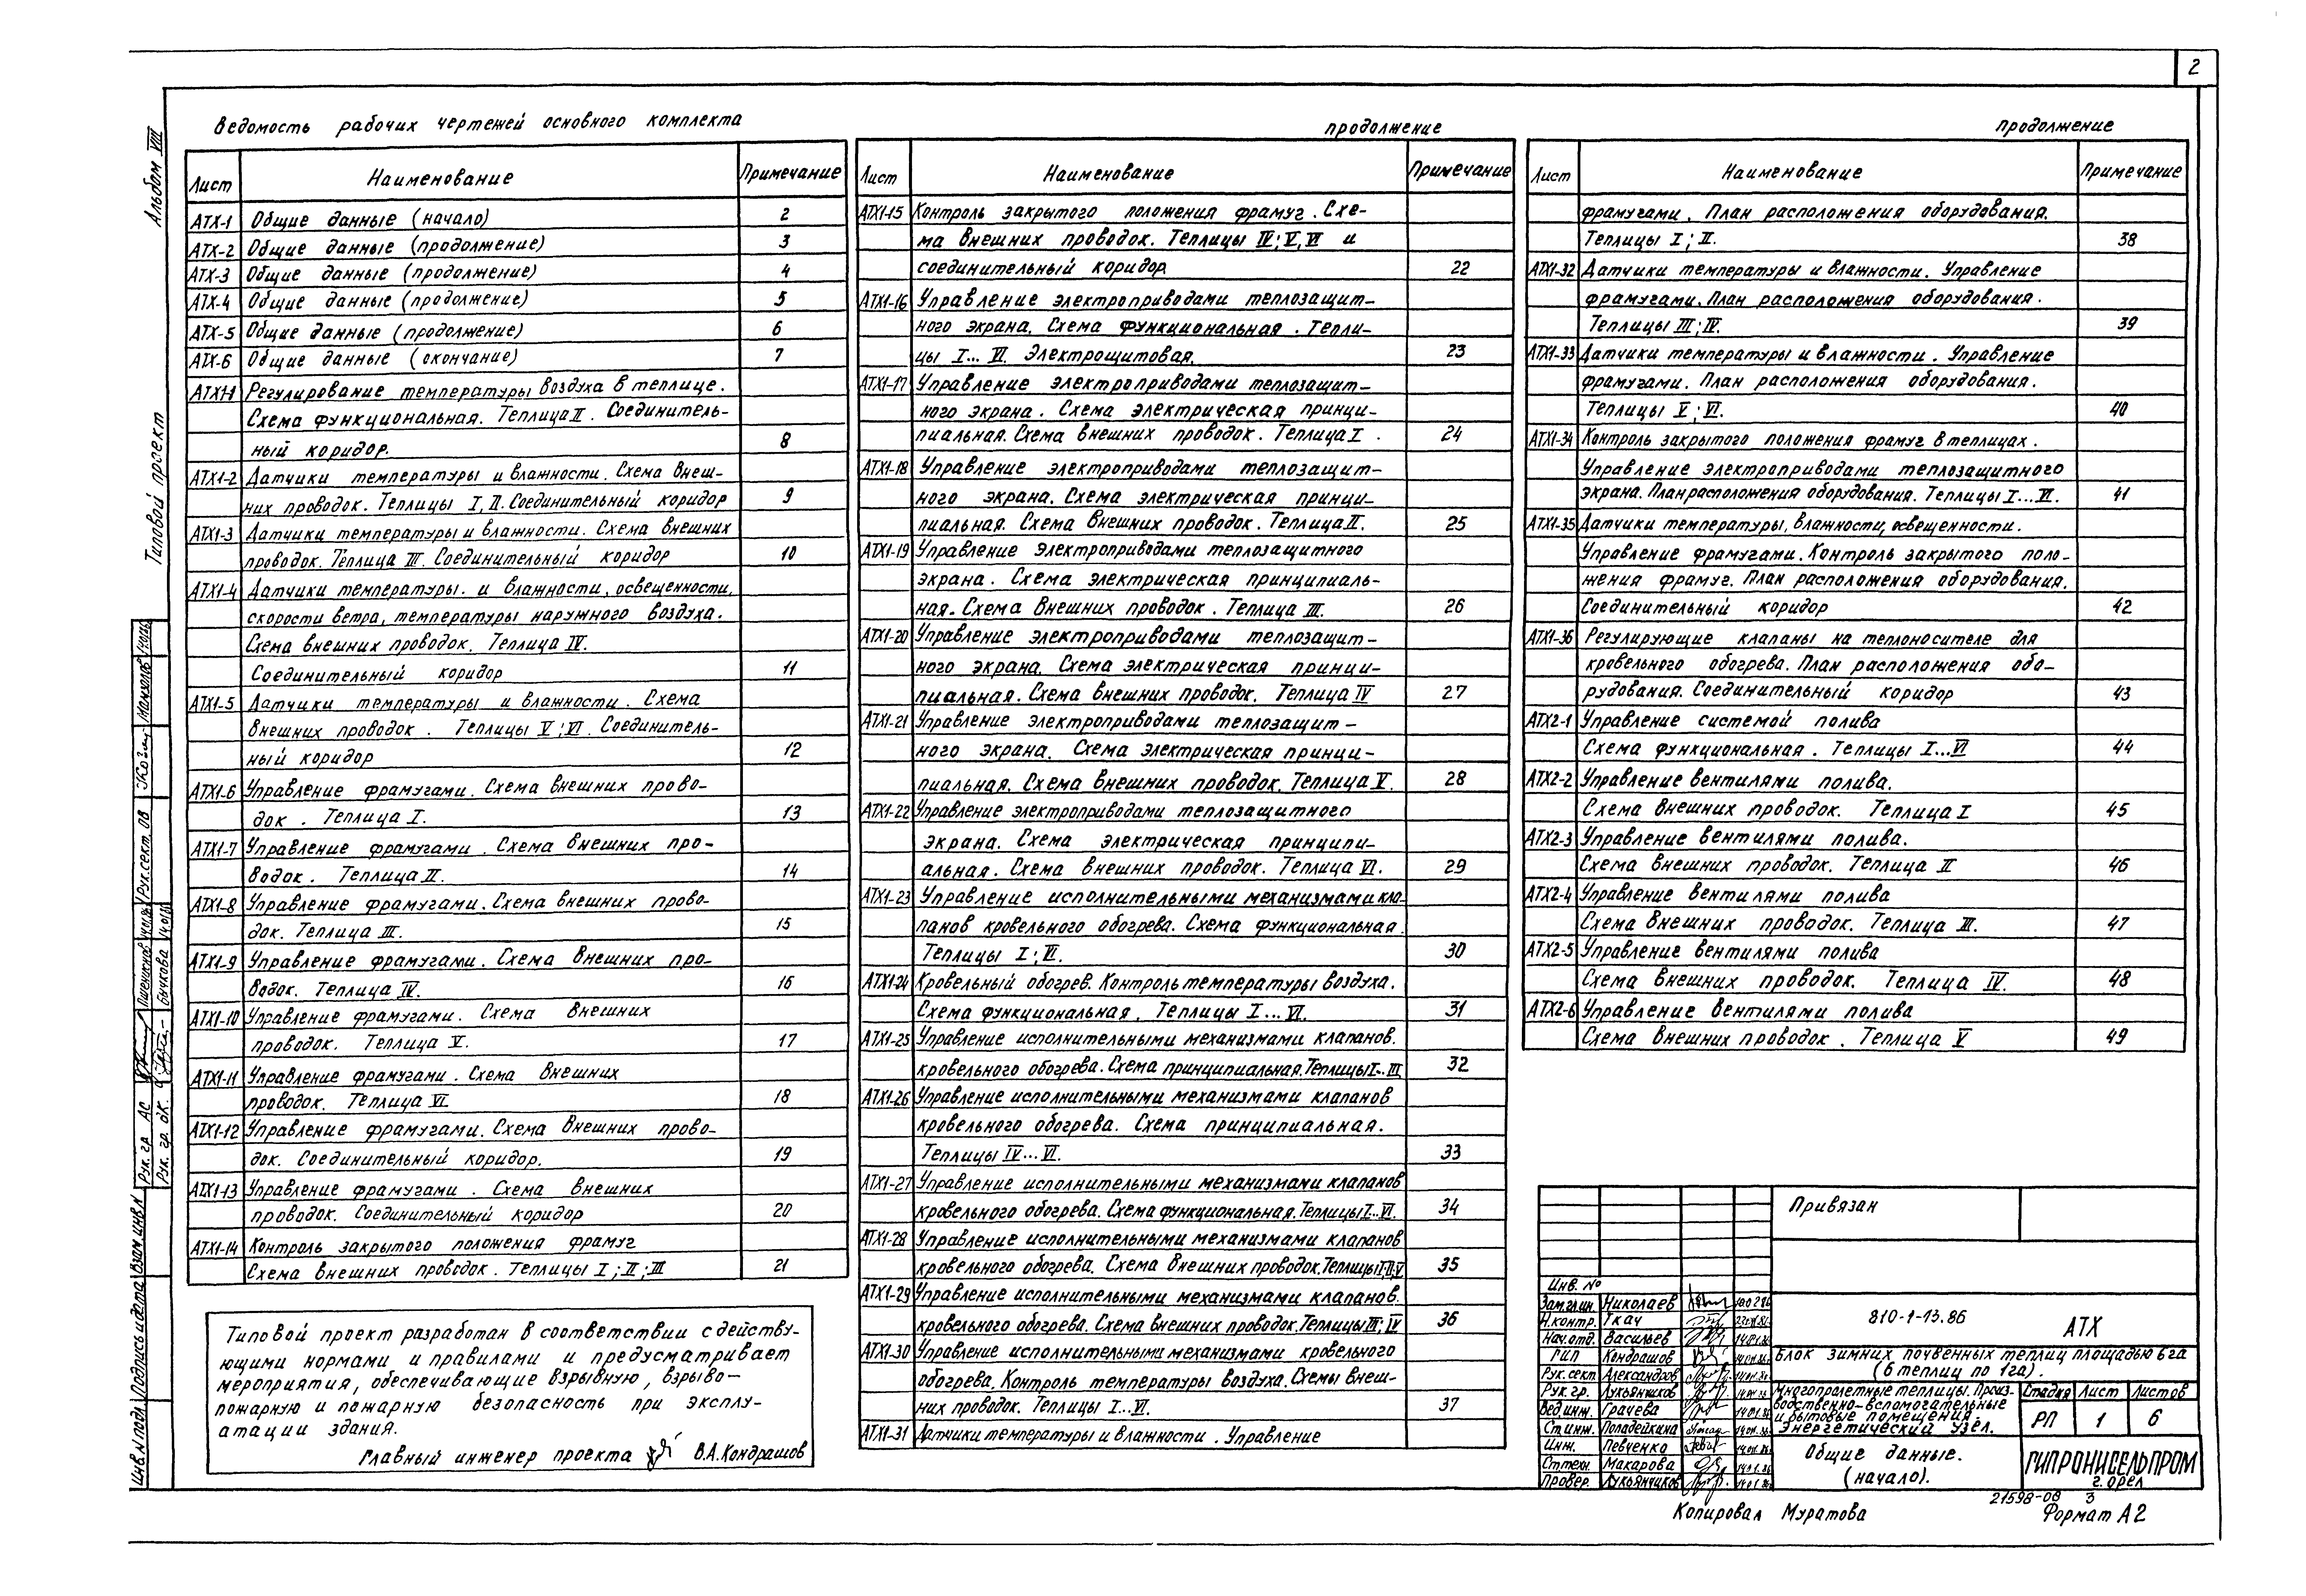 2
Альбом VIII
Типовой проект
Ведомость рабочих чертежей основного комплекта
Лист Наименование Примечание
АТХ-1 Общие данные (начало) 2
АТХ-2 Общие данные (продолжение) 3
АТХ-3 Общие данные (продолжение) 4
АТХ-4 Общие данные (продолжение) 5
АТХ-5 Общие данные (продолжение) 6
АТХ-6 Общие данные (окончание) 7
АТХ1-1 Регулирование температуры воздуха в теплице.
Схема функциональная. Теплица II. Соединитель-
ный коридор. 8
АТХ1-2 Датчики температуры и влажности. Схема внеш-
них проводок. Теплицы I, II. Соединительный коридор 9
АТХ1-3 Датчики температуры и влажности. Схема внешних
проводок. Теплица III. Соединительный коридор 10
АТХ1-4 Датчики температуры. и влажности, освещенности,
скорости ветра, температуры наружного воздуха.
Схема внешних проводок. Теплица IV.
Соединительный коридор 11
АТХ1-5 Датчики температуры и влажности. Схема
внешних проводок. Теплицы V; VI. Соединитель-
ный коридор 12
АТХ1-6 Управление фрамугами. Схема внешних прово-
док. Теплица I. 13
АТХ1-7 Управление фрамугами. Схема внешних про-
водок. Теплица II. 14
АТХ1-8 Управление фрамугами. Схема внешних прово-
док. Теплица III. 15
АТХ1-9 Управление фрамугами. Схема внешних про-
водок. Теплица IV. 16
АТХ1-10 Управление фрамугами. Схема внешних
проводок. Теплица V. 17
АТХ1-11 Управление фрамугами. Схема внешних
проводок. Теплица VI. 18
АТХ1-12 Управление фрамугами. Схема внешних прово-
док. Соединительный коридор. 19
АТХ1-13 Управление фрамугами. Схема внешних
проводок. Соединительный коридор 20
АТХ1-14 Контроль закрытого положения фрамуг
Схема внешних проводок. Теплицы I; II; III 21
Типовой проект разработан в соответствии с действу-
ющими нормами и правилами и предусматривает
мероприятия, обеспечивающие взрывную, взрыво-
пожарную и пожарную безопасность при эксплу-
атации здания.
Главный инженер проекта В.А. Кондрашов
продолжение
Лист Наименование Примечание
АТХ1-15 Контроль закрытого положения фрамуг. Схе-
ма внешних проводок. Теплицы IV; V, VI и
соединительный коридор. 22
АТХ1-16 Управление электроприводами теплозащит-
ного экрана. Схема функциональная. Тепли-
цы I... VI. Электрощитовая. 23
АТХ1-17 Управление электроприводами теплозащит-
ного экрана. Схема электрическая принци-
пиальная. Схема внешних проводок. Теплица I. 24
АТХ1-18 Управление электроприводами теплозащит-
ного экрана. Схема электрическая принци-
пиальная. Схема внешних проводок. Теплица II. 25
АТХ1-19 Управление электроприводами теплозащитного
экрана. Схема электрическая принципиаль-
ная. Схема внешних проводок. Теплица III. 26
АТХ1-20 Управление электроприводами теплозащит-
ного экрана. Схема электрическая принци-
пиальная. Схема внешних проводок. Теплица IV 27
АТХ1-21 Управление электроприводами теплозащит-
ного экрана. Схема электрическая принци-
пиальная. Схема внешних проводок. Теплица V. 28
АТХ1-22 Управление электроприводами теплозащитного
экрана. Схема электрическая принципи-
альная. Схема внешних проводок. Теплица VI. 29
АТХ1-23 Управление исполнительными механизмами кла-
панов кровельного обогрева. Схема функциональная.
Теплицы I; II. 30
АТХ1-24 Кровельный обогрев. Контроль температуры воздуха.
Схема функциональная. Теплицы I... VI. 31
АТХ1-25 Управление исполнительными механизмами клапанов.
кровельного обогрева. Схема принципиальная. Теплицы I...III. 32
АТХ1-26 Управление исполнительными механизмами клапанов
кровельного обогрева. Схема принципиальная.
Теплицы IV... VI. 33
АТХ1-27 Управление исполнительными механизмами клапанов
кровельного обогрева. Схема функциональная. Теплицы I...VI. 34
АТХ1-28 Управление исполнительными механизмами клапанов
кровельного обогрева. Схема внешних проводок. Теплицы I; II; V 35
АТХ1-29 Управление исполнительными механизмами клапанов.
кровельного обогрева. Схема внешних проводок. Теплицы III; IV 36
АТХ1-30 Управление исполнительными механизмами кровельного
обогрева. Контроль температуры воздуха. Схемы внеш-
них проводок. Теплицы I...VI. 37
АТХ1-31 Датчики температуры и влажности. Управление
продолжение
Лист Наименование Примечание
фрамугами. План расположения оборудования.
Теплицы I; II. 38
АТХ1-32 Датчики температуры и влажности. Управление
фрамугами. План расположения оборудования.
Теплицы III; IV. 39
АТХ1-33 Датчики температуры и влажности. Управление
фрамугами. План расположения оборудования.
Теплицы V; VI. 40
АТХ1-34 Контроль закрытого положения фрамуг в теплицах.
Управление электроприводами теплозащитного
экрана. План расположения оборудования. Теплицы I...VI. 41
АТХ1-35 Датчики температуры, влажности, освещенности.
Управление фрамугами. Контроль закрытого поло-
жения фрамуг. План расположения оборудования.
Соединительный коридор 42
АТХ1-36 Регулирующие клапаны на теплоносителе для
кровельного обогрева. План расположения обо-
рудования. Соединительный коридор 43
АТХ2-1 Управление системой полива
Схема функциональная. Теплицы I...VI 44
АТХ2-2 Управление вентилями полива.
Схема внешних проводок. Теплица I 45
АТХ2-3 Управление вентилями полива.
Схема внешних проводок. Теплица II 46
АТХ2-4 Управление вентилями полива
Схема внешних проводок. Теплица III. 47
АТХ2-5 Управление вентилями полива
Схема внешних проводок. Теплица IV. 48
АТХ2-6 Управление вентилями полива
Схема внешних проводок. Теплица V 49
Привязан
Инв. №
Зам.гл.ин. Николаев
Н.контр. Ткач
Нач.отд. Васильев
ГИП Кондрашов
Рук.сект. Александров
Рук.гр. Лукьянчиков
Вед.инж. Грачева
Ст.инж. Попадейкина
Инж. Певченко
Ст.техн. Макарова
Провер. Лукьянчиков
810-1-13.86 АТХ
Блок зимних почвенных теплиц площадью 6га
(6 теплиц по 1га).
Многопролетные теплицы. Произ-
водственно-вспомогательные
и бытовые помещения.
Энергетический узел.
Стадия Лист Листов
РП 1 6
Общие данные.
(начало).
ГИПРОНИСЕЛЬПРОМ
г. Орел
21598-08 3
Копировал Муратова Формат А2
Рук. гр. АС
Рук. гр. ОК.
Рук. сект. ОВ
Бычкова
Инв. N подл. Подпись и дата Взам. инв N